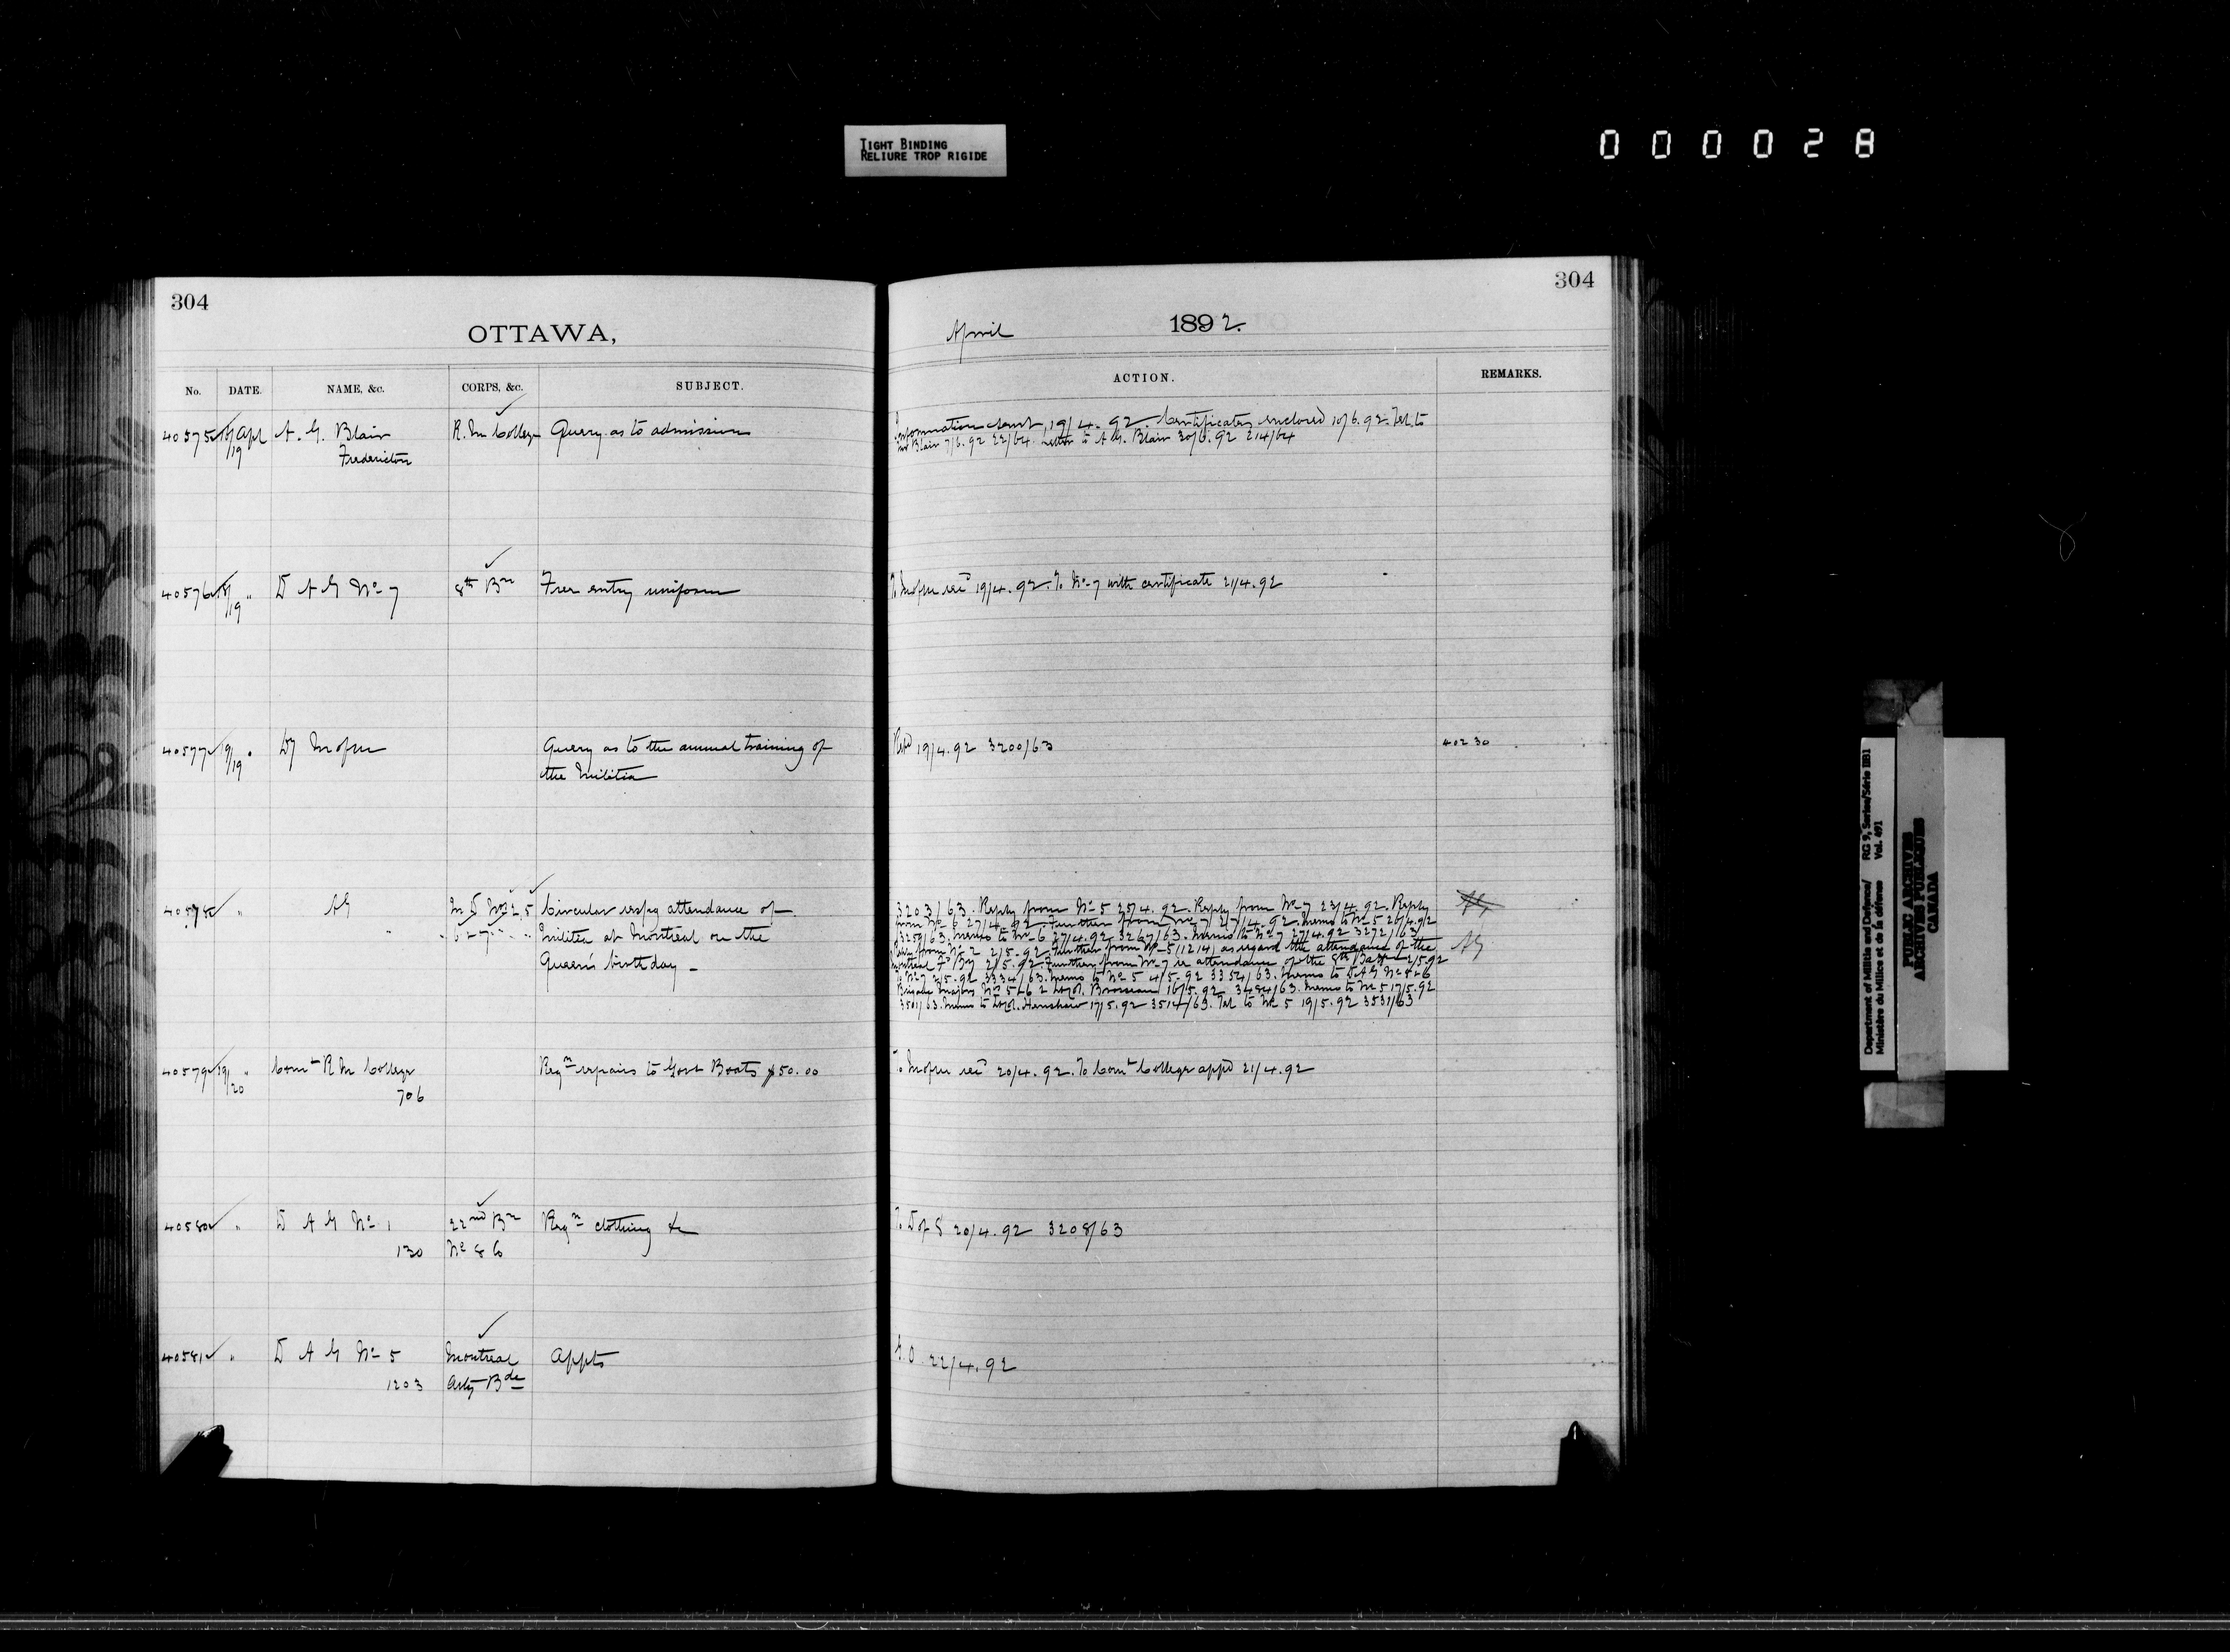 TIGHT BINDING
RELIURE TROP RIGIDE
000028
304
OTTAWA,
No. DATE. NAME, &c. CORPS, &c. SUBJECT.
40575 18/19 Apl A. G. Blair R. M College Query as to admission
Fredericton
40576 18/19 " D A G No 7 8th Bn Free entry uniform
40577 19/19 " Dy Query as to the annual training of
the Militia
40578 " AG M D Nos 2, 5 Circular respg attendance of
6 & 7 Militia at Montreal on the
Queen's birthday -
40579 19/20 " Comt R M College Reqn repairs to Govt Boats $50.00
706
40580 " D A G No 1 22nd Bn Reqn clothing &c
130 No 8 Co
40581 " D A G No 5 Montreal Appts
1203 Arty Bde
304
April 1892.
ACTION. REMARKS.
Information sent 19/4.92. Certificates enclosed 10/6.92. Tel. to
Mr Blair 7/6.92 22/64. Letter to A. G. Blair 30/6.92 214/64
19/4.92. To No 7 with certificate 21/4.92
Repd 19/4.92 3200/63 40230
3203/63. Reply from No 5 25/4.92. Reply from No 7 23/4.92. Reply
from No 6 27/4.92. Further from No 7 27/4.92. Memo to No 5 26/4.92
3259/63. Memo to No 6 27/4.92 3267/63. Memo to No 7 27/4.92 3272/63
from No 2 2/5.92. Further from No 5/1214 as regard the attendance of the AG
Montreal Fd By 2/5.92. Further from No 7 re attendance of the 8th Battn 2/5.92
To No 7 2/5.92 3334/63. Memo to No 5 4/5.92 3354/63. Memo to D.A.G No 5 & 6
Brigade Majors No 5 & 6 & Lt Col. Brosseau 16/5.92 3484/63. Memo to No 5 17/5.92
3501/63. Memo to Lt Col. Henshaw 17/5.92 3514/63. Tel to No 5 19/5.92 3531/63
20/4.92. To Comt College appd 21/4.92
To D of S 20/4.92 3208/63
G.O. 22/4.92
Department of Militia and Defence/ RG 9, Series/Série IIB1
Ministère du Milice et de la défense Vol. 491
PUBLIC ARCHIVES
ARCHIVES PUBLIQUES
CANADA